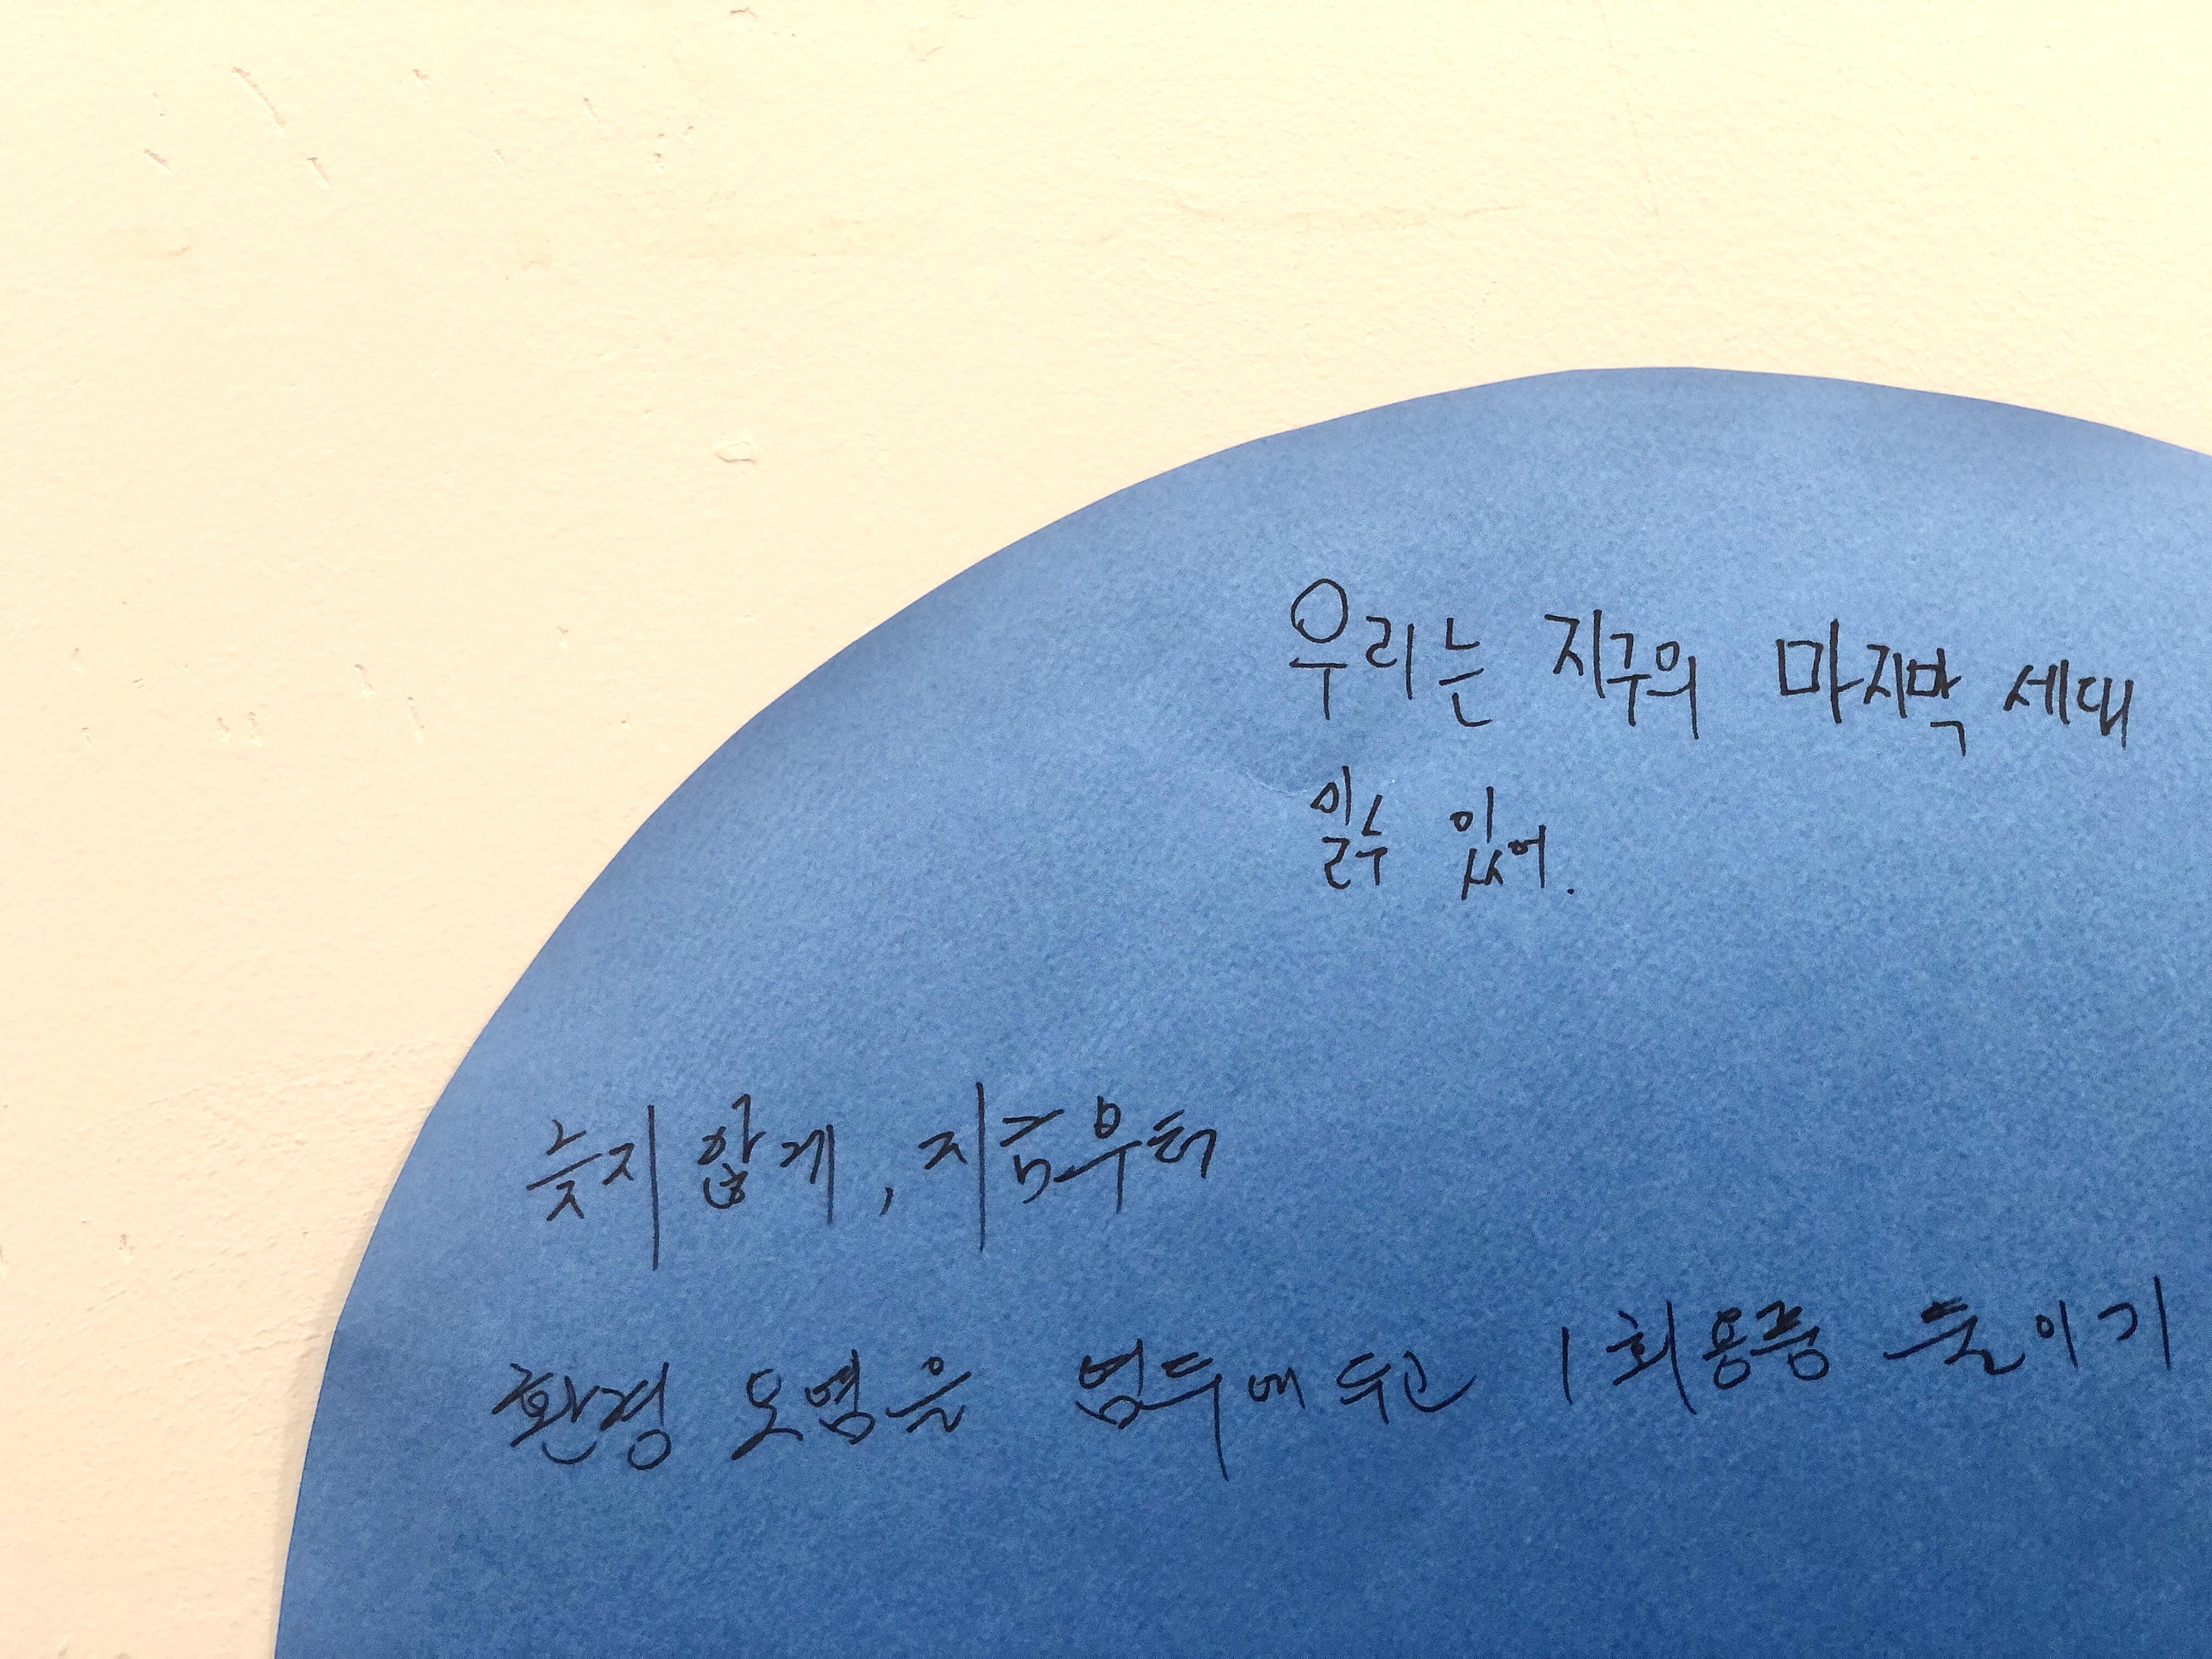 우리는 지구의 마지막 세대
일수 있어.
늦지 않게, 지금부터
환경 오염을 염두에 두고 1회용품 줄이기